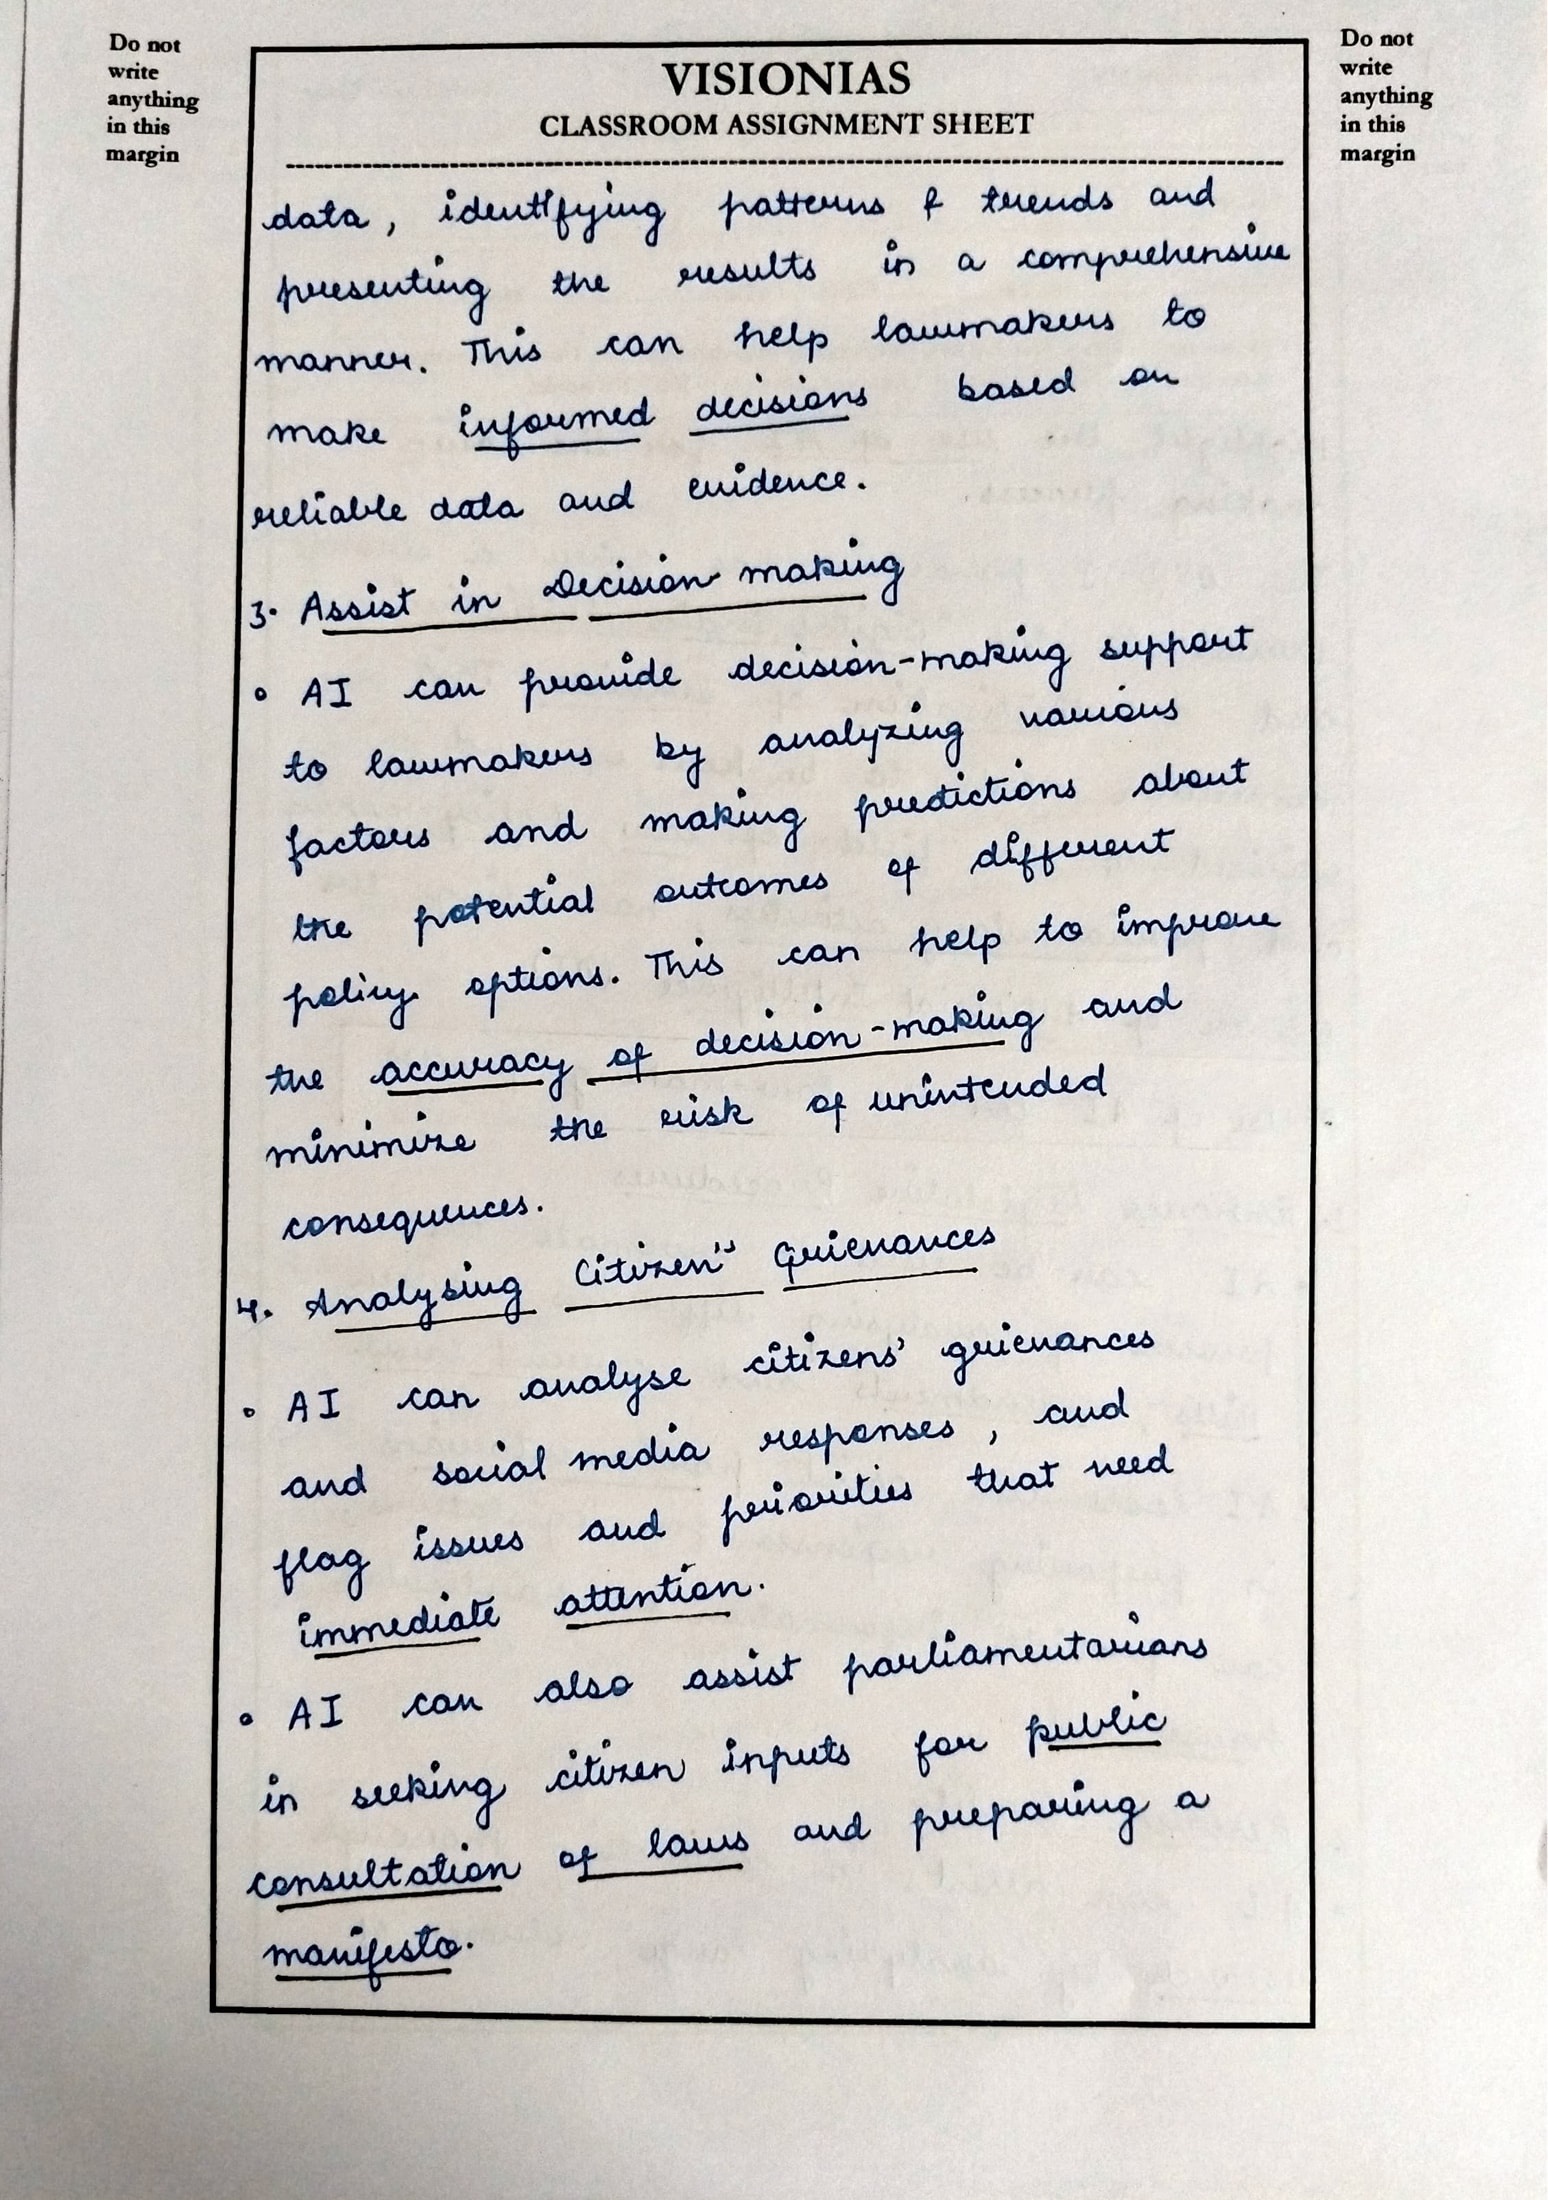 Do not
write
anything
in this
margin
Do not
write
anything
in this
margin
VISIONIAS
CLASSROOM ASSIGNMENT SHEET
data, identifying patterns & trends and
presenting the results in a comprehensive
manner. This can help lawmakers to
make informed decisions based on
reliable data and evidence.
3. Assist in Decision making
• AI can provide decision-making support
to lawmakers by analyzing various
factors and making predictions about
the potential outcomes of different
policy options. This can help to improve
the accuracy of decision-making and
minimize the risk of unintended
consequences.
4. Analysing Citizen'' Grievances
• AI can analyse citizens' grievances
and social media responses, and
flag issues and priorities that need
immediate attention.
• AI can also assist parliamentarians
in seeking citizen inputs for public
consultation of laws and preparing a
manifesto.